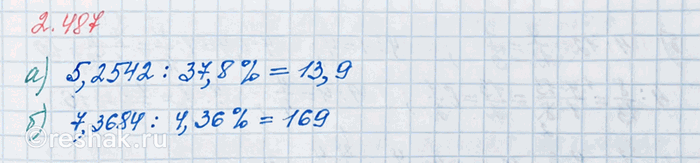 2.487
а) 5,2542 : 37,8 % = 13,9
б) 7,3684 : 4,36 % = 169
reshak.ru